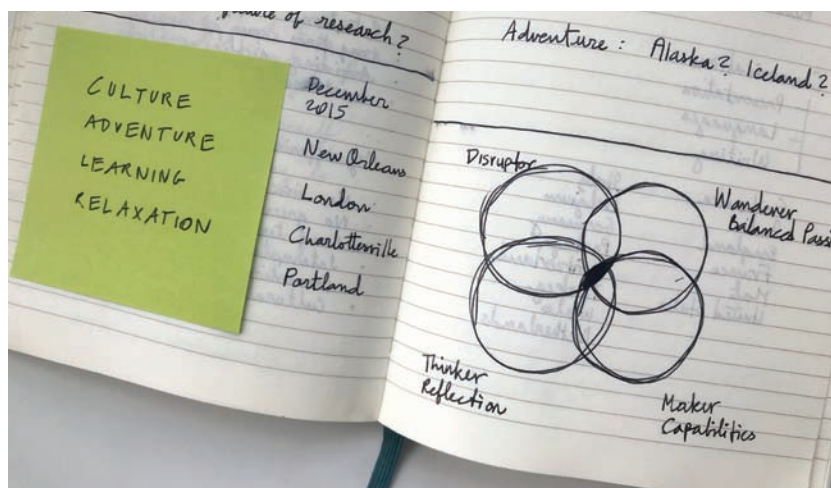 of research?
CULTURE
ADVENTURE
LEARNING
RELAXATION
December
2015
New Orleans
London
Charlottesville
Portland
Adventure: Alaska? Iceland?
Disruptor
Wanderer
Balanced
Thinker
Reflection
Maker
Capabilities